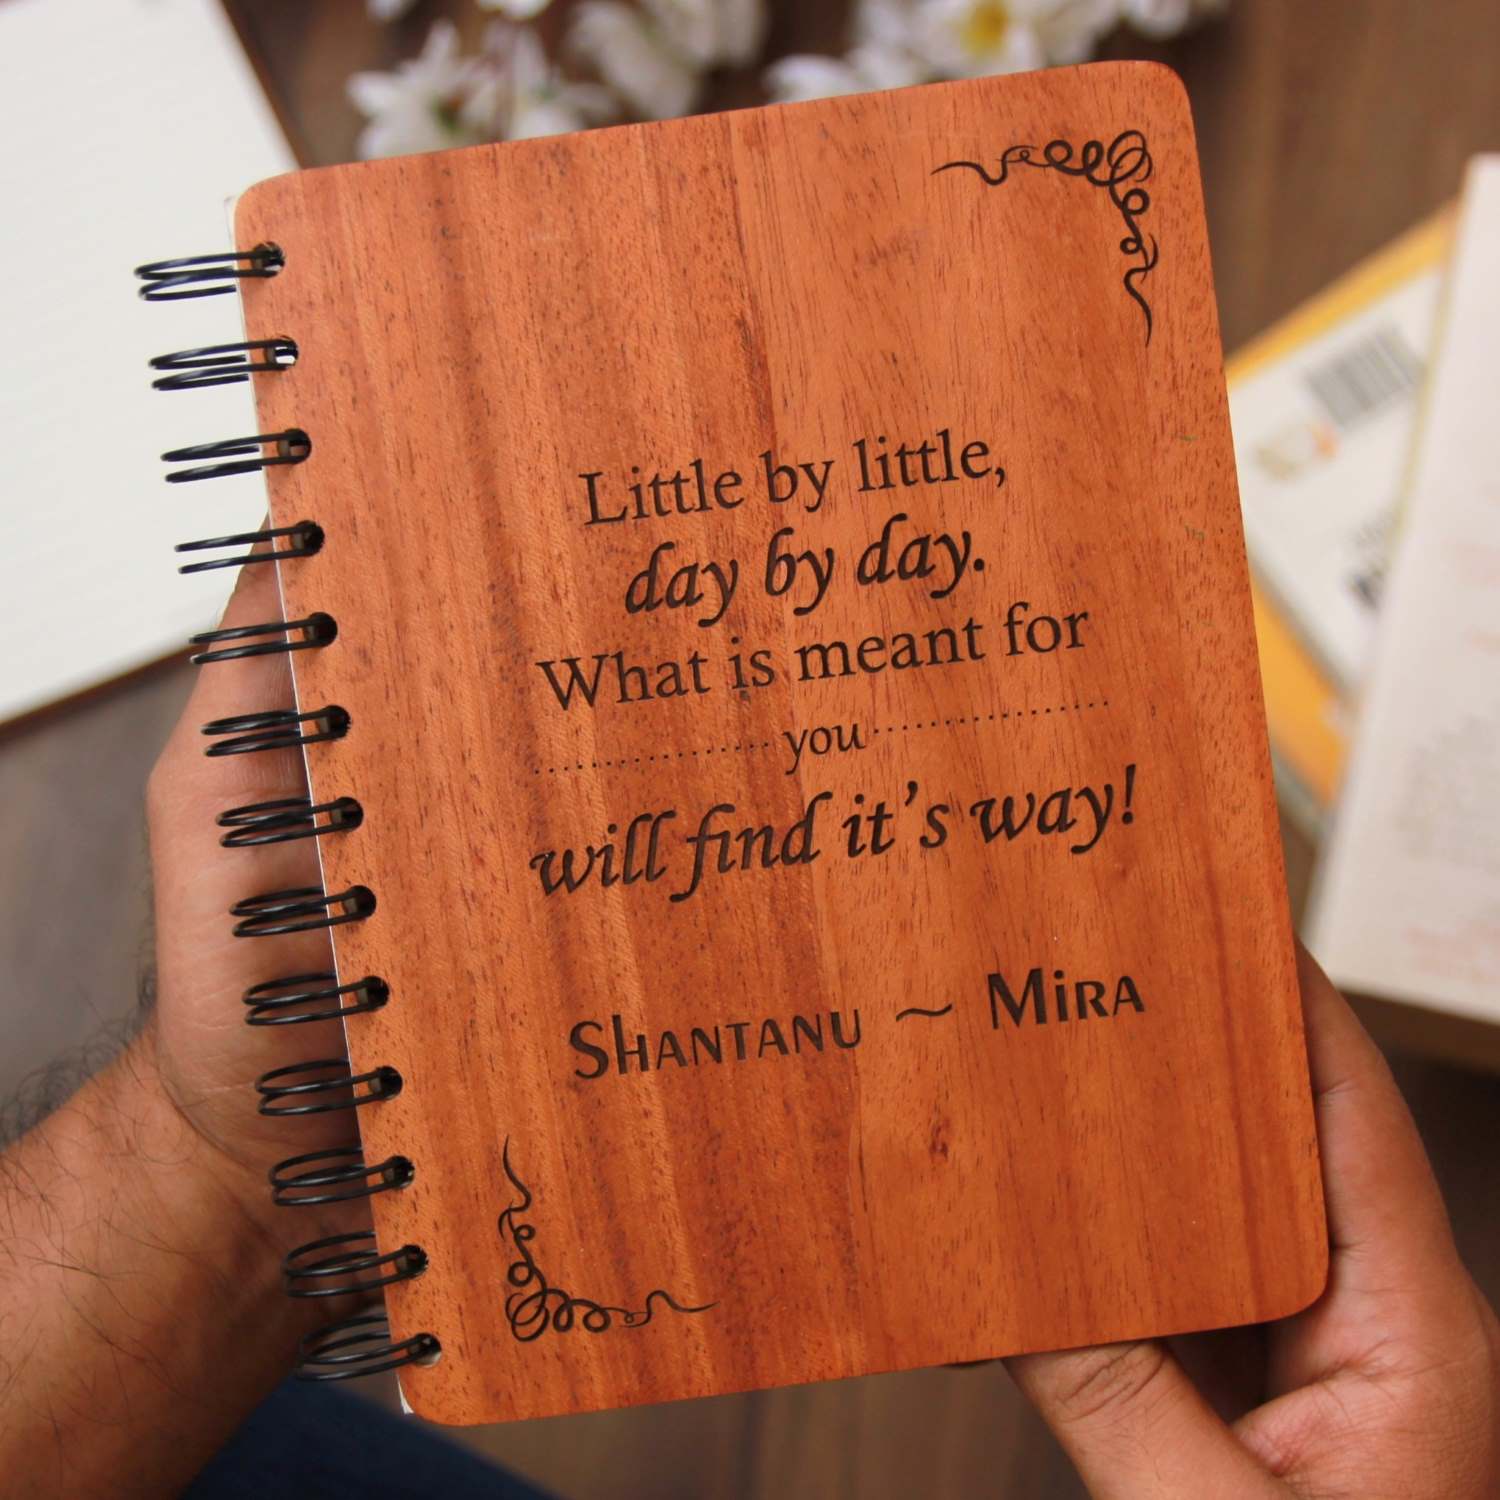 Little by little,
day by day.
What is meant for
you
will find it's way!
Shantanu ~ Mira